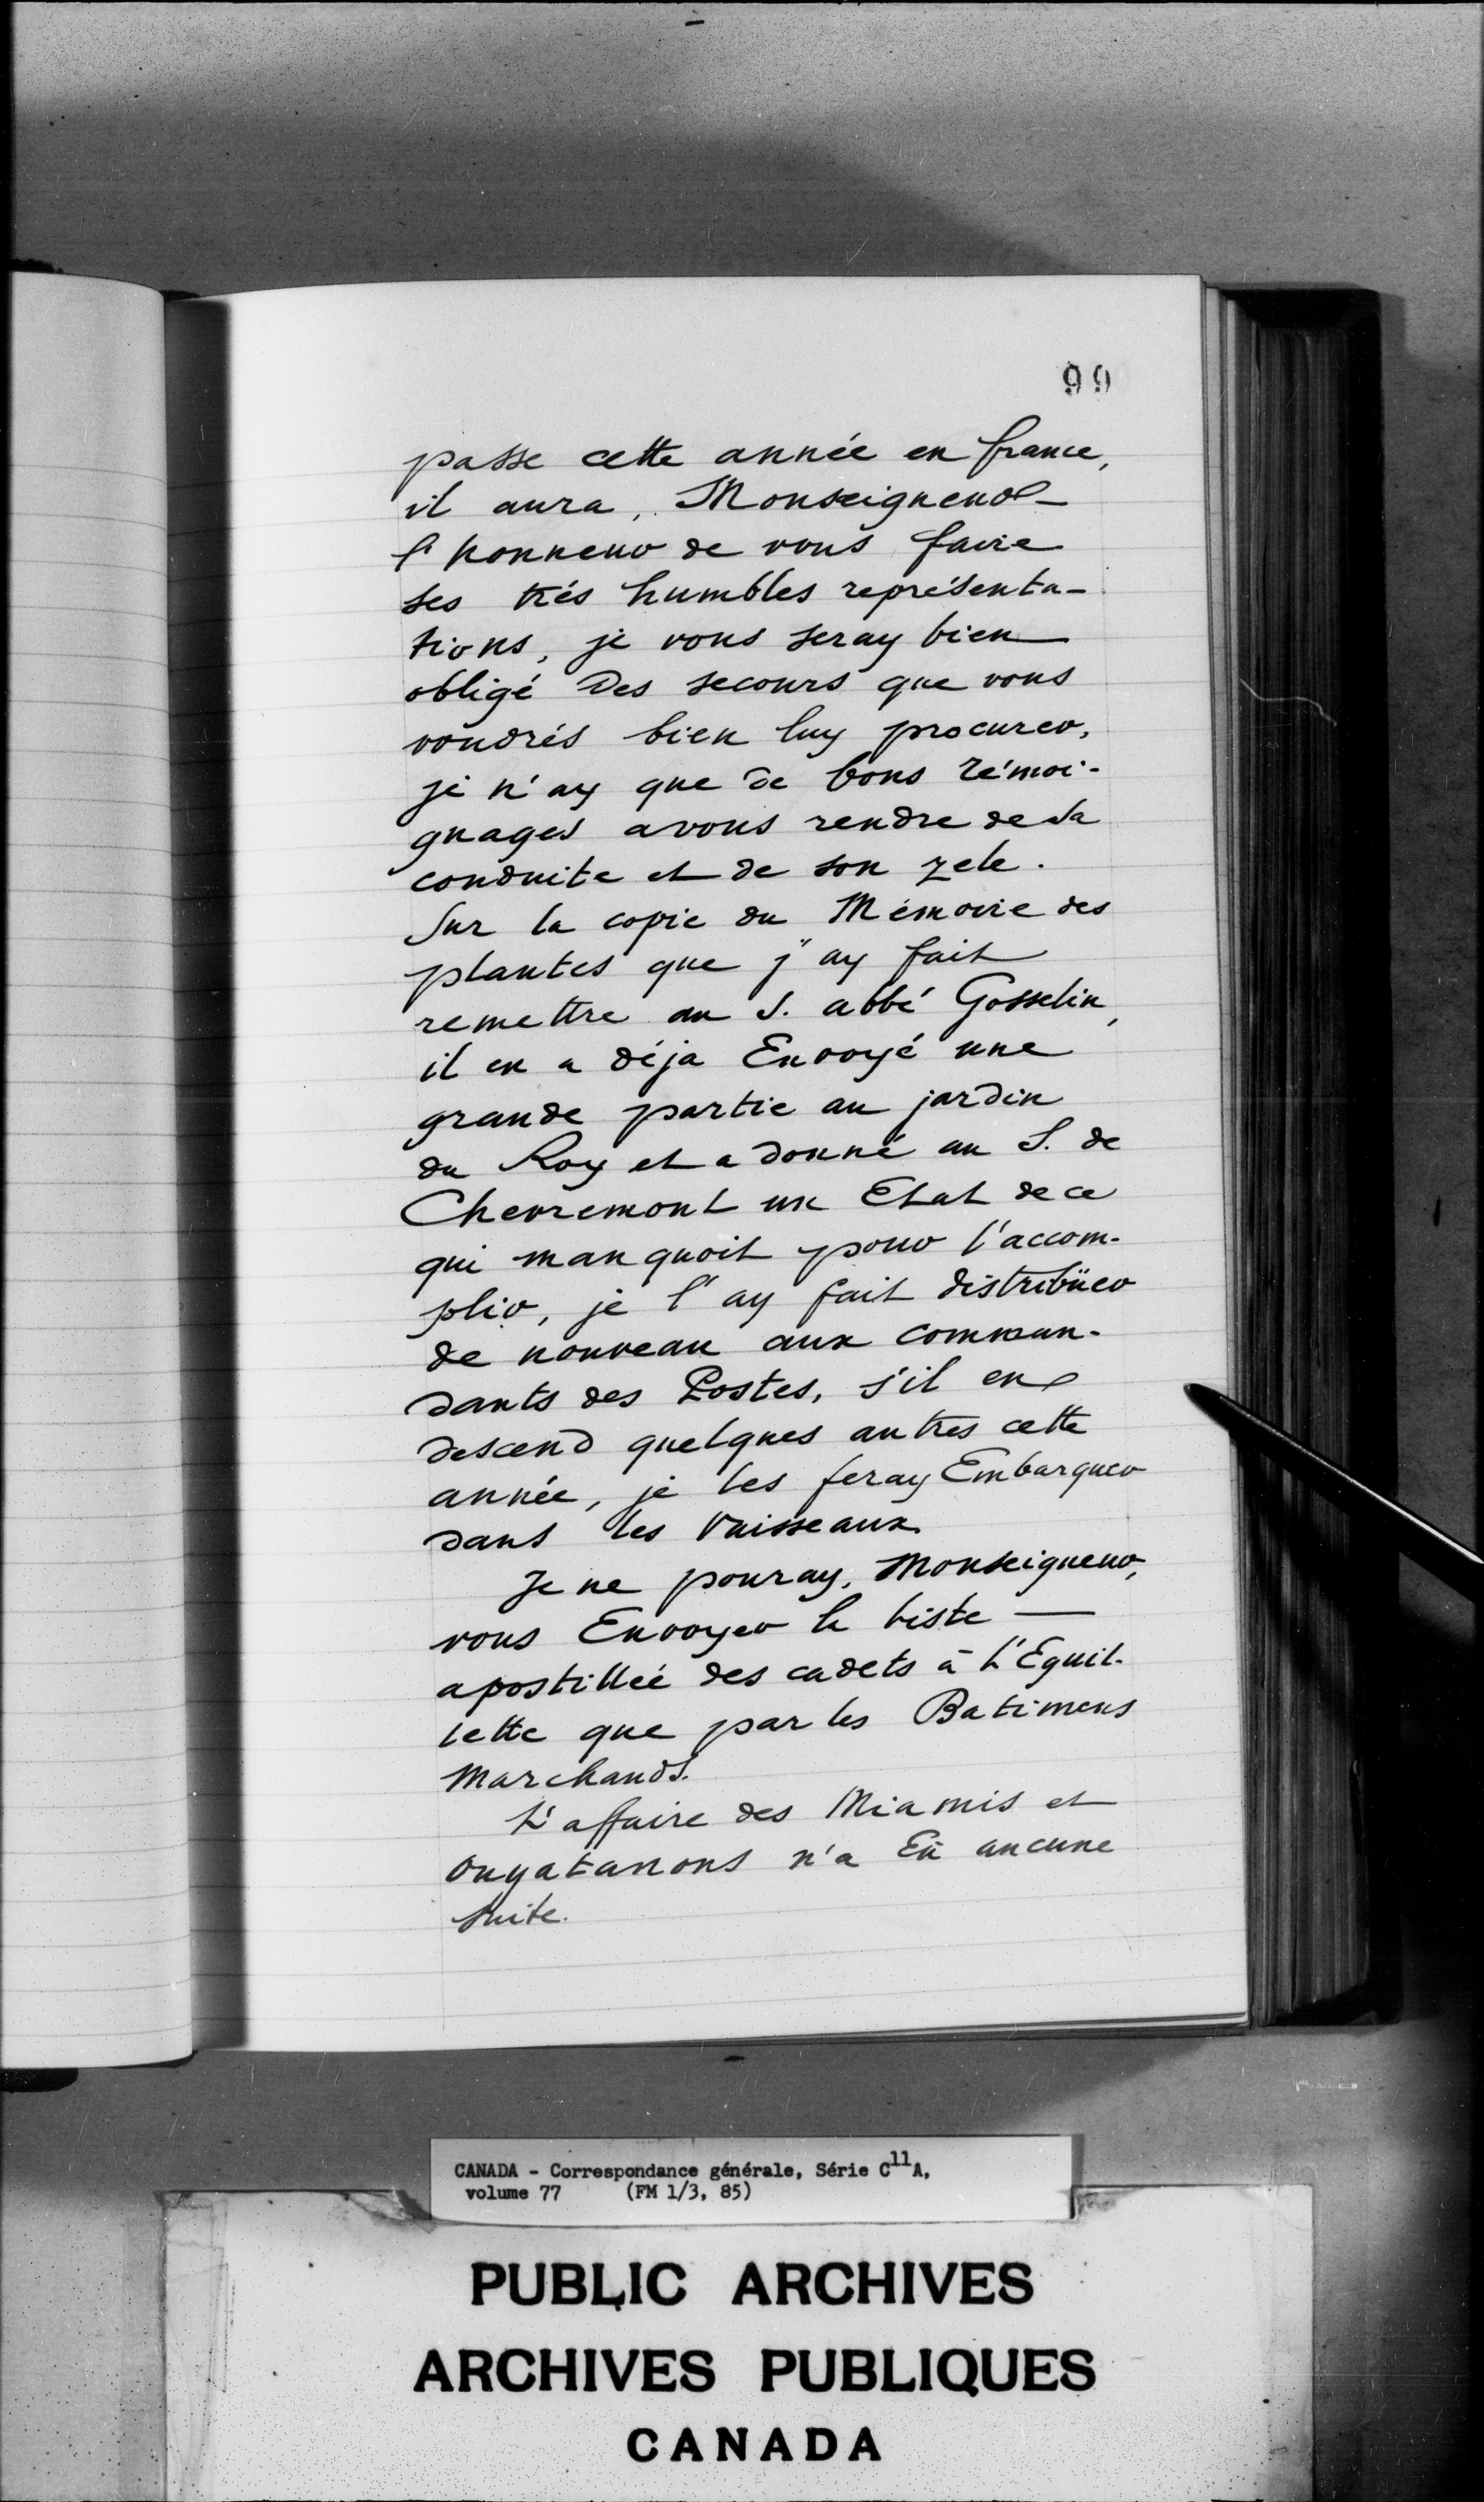 99
passe cette année en france,
il aura, Monseigneur
l'honneur de vous faire
ses trés humbles représenta-
tions, je vous seray bien
obligé des secours que vous
voudrés bien luy procurer,
je n'ay que de bons témoi-
gnages avous rendre de sa
conduite et de son zele.
Sur la copie du Mémoire des
plantes que j'ay fait
remettre au S. abbé Gosselin,
il en a déja Envoyé une
grande partie au jardin
du Roy et a donné au S. de
Chevremont un Etat de ce
qui manquoit pour l'accom-
plir, je l'ay fait distribüer
de nouveau aux comman-
dants des Postes, s'il en
descend quelques autres cette
année, je les feray Embarquer
dans les Vaisseaux.
Je ne pouray, Monseigneur,
vous Envoyer la liste —
apostillée des cadets à L'Eguil-
lette que par les Batimens
Marchands.
L'affaire des Miamis et
Ouyatanons n'a Eü aucune
suite.
CANADA - Correspondance générale, Série C11A,
volume 77 (FM 1/3, 85)
PUBLIC ARCHIVES
ARCHIVES PUBLIQUES
CANADA